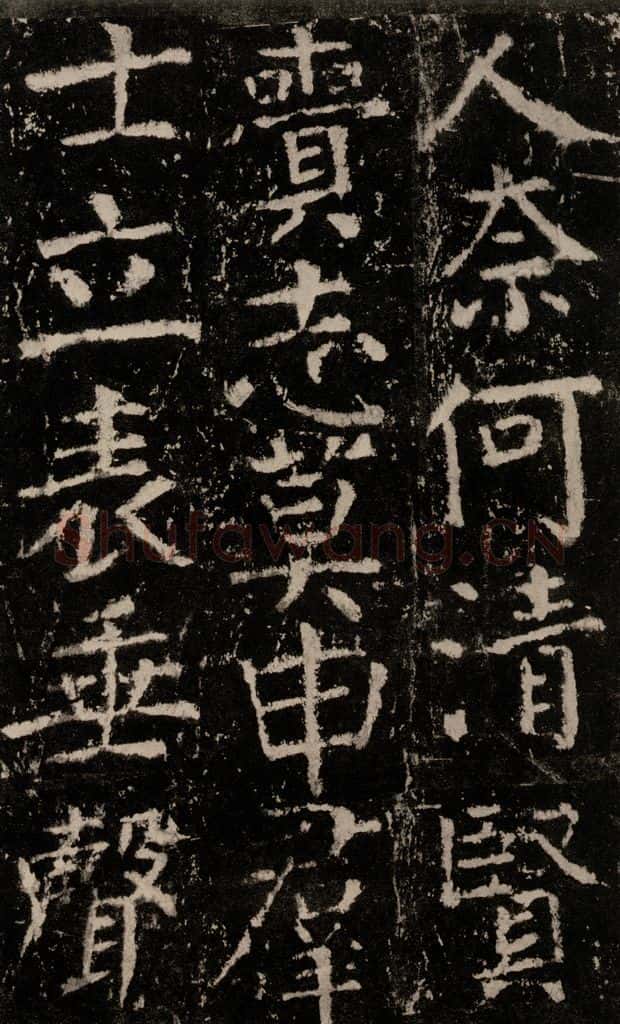 人奈何清賢
賷志莫申
士立表垂聲
Shufawang.CN